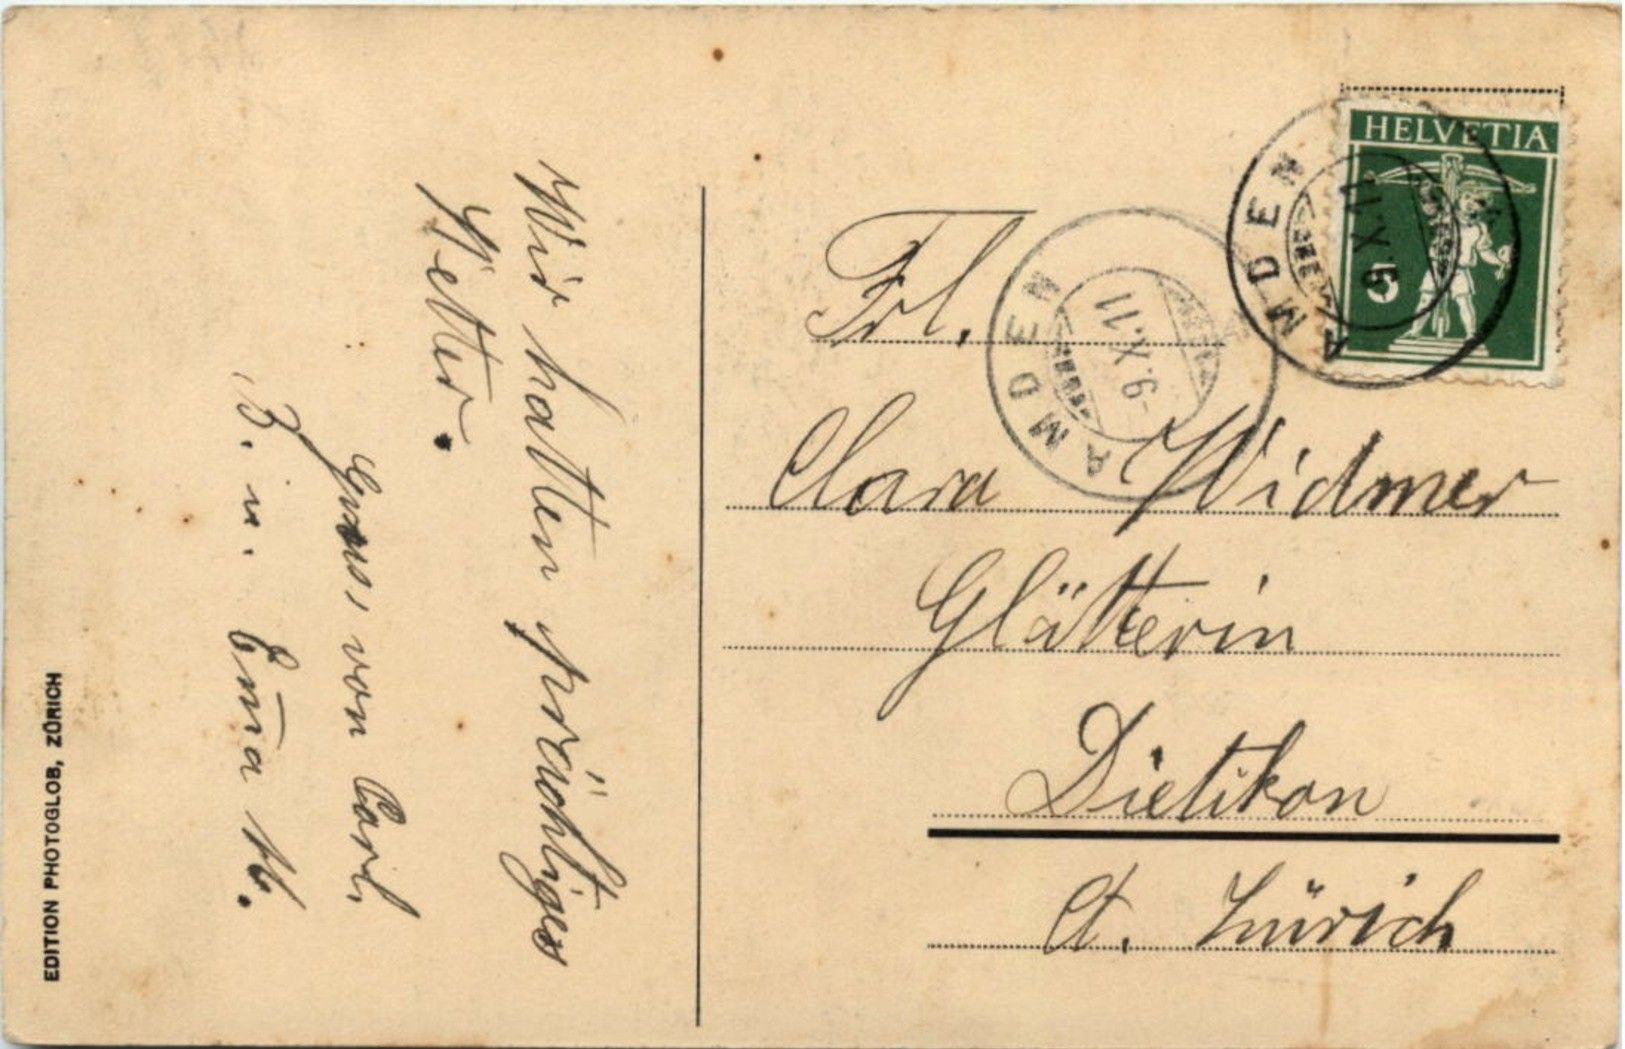 Wir hatten prächtiges
Wetter.
Gruss von Carl,
B. u. Em̄a W.
EDITION PHOTOGLOB, ZÜRICH
HELVETIA
5
AMDEN
-9.X.11
AMDEN
-9.X.11
Frl.
Clara Widmer
Glätterin
Dietikon
Ct. Zürich